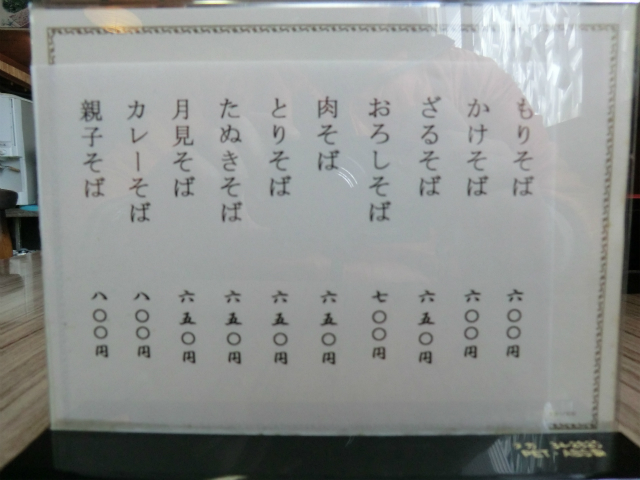 もりそば 六〇〇円
かけそば 六〇〇円
ざるそば 六五〇円
おろしそば 七〇〇円
肉そば 六五〇円
とりそば 六五〇円
たぬきそば 六五〇円
月見そば 六五〇円
カレーそば 八〇〇円
親子そば 八〇〇円